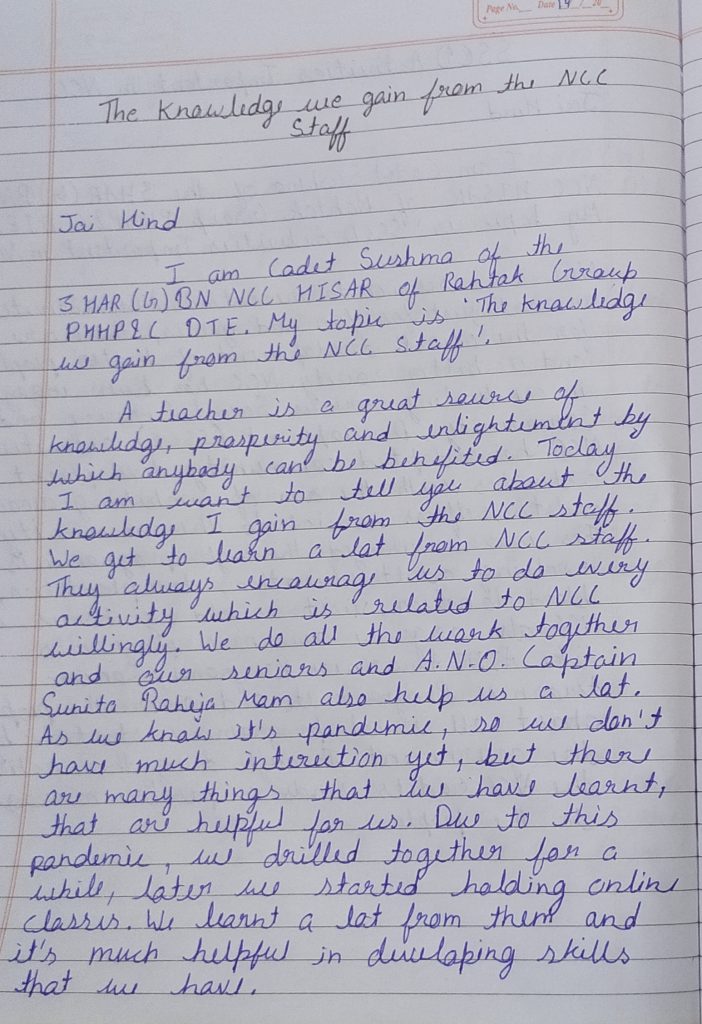 Page No. Date 19 / 20
The Knowledge we gain from the NCC
Staff
Jai Hind
I am Cadet Sushma of the
3 HAR (G) BN NCC HISAR of Rohtak Group
PHHP&C DTE. My topic is 'The knowledge
we gain from the NCC Staff'.
A teacher is a great source of
knowledge, prosperity and enlightement by
which anybody can be behefited. Today
I am want to tell you about the
knowledge I gain from the NCC staff.
We get to learn a lot from NCC staff.
They always encourage us to do every
activity which is related to NCC
willingly. We do all the work together
and our seniors and A.N.O. Captain
Sunita Raheja Mam also help us a lot.
As we know it's pandemic, so we don't
have much interection yet, but there
are many things that we have learnt,
that are helpful for us. Due to this
pandemic, we drilled together for a
while, later we started holding online
classes. We learnt a lot from them and
it's much helpful in developing skills
that we have.